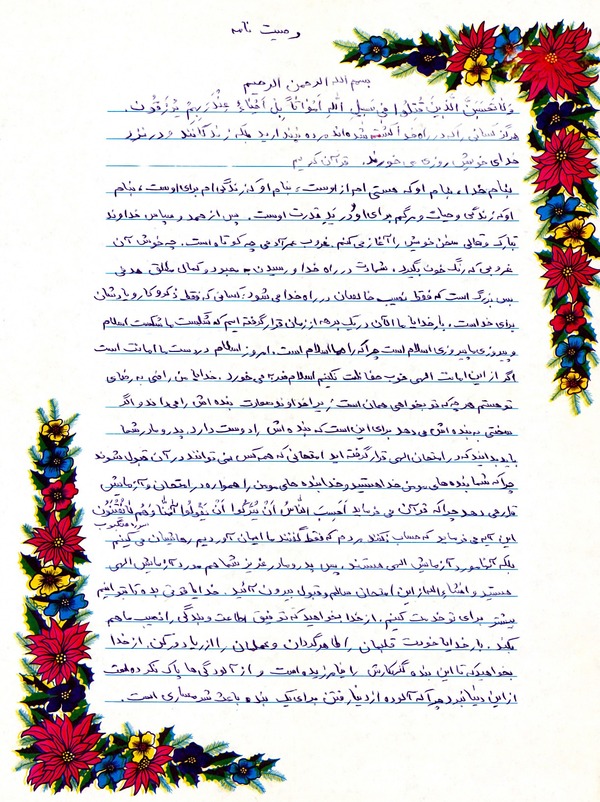 وصیت نامه
بسم الله الرحمن الرحیم
وَلا تَحْسَبَنَّ الَّذينَ قُتِلُوا فِي سَبِيلِ اللهِ اَمْوَاتاً بَلْ اَحْيَاءٌ عِنْدَ رَبِهِمْ يُرْزَقُونَ.
هرگز کسانی را که در راه خدا کشته شده‌اند مرده نپندارید بلکه زنده‌اند و در نزد
خدای خویش روزی می خورند. قرآن کریم
بنام خدا، بنام او که هستی ام از اوست، بنام او که زندگی ام برای اوست، بنام
او که زندگی و حیات و مرگم برای او و در ید قدرت اوست. پس از حمد و سپاس خداوند
تبارک و تعالی سخن خویش را آغاز می کنم. غروب عمر آدمی چه کوتاه است. چه خوش آن
غروبی که رنگ خون بگیرد. شهادت در راه خدا و رسیدن به معبود و کمال مطلق هدفی
بس بزرگ است که فقط نصیب خالصان در راه خدا می شود. کسانی که فقط ذکر و کار و یادشان
برای خداست. بار خدایا ما الآن در یک برهه از زمان قرار گرفته ایم که شکست ما شکست اسلام
و پیروزی ما پیروزی اسلام است چرا که راه ما اسلام است. امروز اسلام در دست ما امانت است
اگر از این امانت الهی خوب حفاظت نکنیم اسلام ضربه می خورد. خدایا من راضی به رضای
تو هستم هر چه که تو بخواهی همان است زیرا خداوند سعادت بنده اش را می داند و اگر
سختی به بنده اش می دهد برای این است که بنده اش را دوست دارد. پدر و مادر شما
باید بدانید که در امتحان الهی قرار گرفته اید امتحانی که هر کس نمی تواند در آن قبول شوند
چرا که شما بنده های مومن خدا هستید و خدا بنده های مومن را همواره در امتحان و آزمایش
قرار می دهد چرا که قرآن می فرماید اَحَسِبَ النّاسُ اَنْ يُتْرَكُوا اَنْ يَقُولُوا آمَنّا وَ هُمْ لا يُفْتَنُونَ
سوره عنکبوت
این آیه می فرماید که حساب نکنند مردم که فقط گفتند ما ایمان آوردیم رهایشان می کنیم
بلکه آنها مورد آزمایش الهی هستند. پس پدر و مادر عزیز شما هم مورد آزمایش الهی
هستید و انشاء الله از این امتحان سالم و قبول بیرون آئید. خدایا قوتی بده تا بتوانم
بیشتر برای تو خدمت کنیم. از خدا بخواهید که توفیق اطاعت و بندگی را نصیب ما هم
بکند. بار خدایا خودت قلبمان را طاهر گردان و عملمان را از ریا دور کن. از خدا
بخواهید که تا این بنده گنهکارش را نیامرزیده است و از آلودگی ها پاک نکرده است
از این دنیا نبرد چرا که آلوده از دنیا رفتن برای یک بنده باعث شرمساری است.